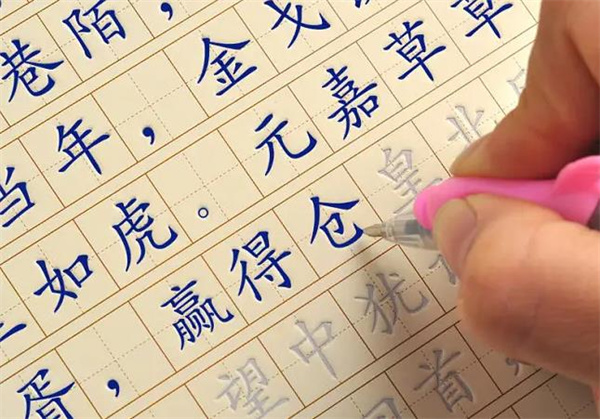 巷陌，
当年，金戈
如虎。元嘉草草
胥，赢得仓皇北
望中犹
首